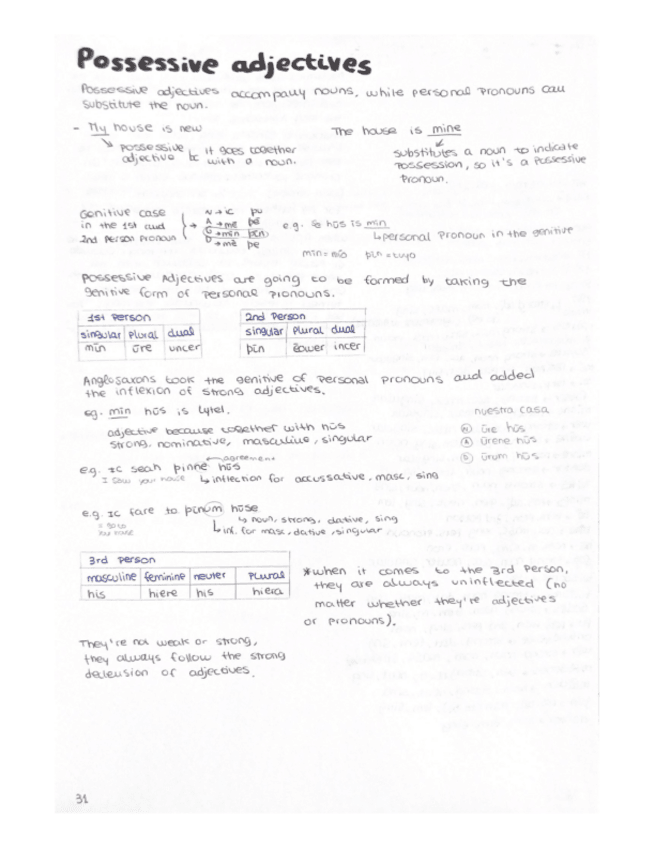 Possessive adjectives
Possessive adjectives accompany nouns, while personal pronouns can
substitute the noun.
- My house is new
The house is mine
possessive adjective
it goes together with a noun.
substitutes a noun to indicate
possession, so it's a possessive
pronoun.
Genitive case
in the 1st and
2nd person pronoun
N → ic þu
A → mē þē
G → mīn þīn
D → mē þe
e.g. hūs is mīn
personal pronoun in the genitive
mīn = mío þīn = tuyo
Possessive Adjectives are going to be formed by taking the
genitive form of personal pronouns.
1st person
singular plural dual
mīn ūre uncer
2nd Person
singular plural dual
þīn ēower incer
Anglosaxons took the genitive of personal pronouns and added
the inflexion of strong adjectives.
eg. mīn hūs is lytel.
adjective because together with hūs
strong, nominative, masculine, singular
nuestra casa
N ūre hūs
A ūrene hūs
D ūrum hūs
agreement
e.g. ic seah þinne hūs
I saw your house
inflection for accussative, masc, sing
e.g. ic fare to þīnum hūse
I go to
your house
noun, strong, dative, sing
inf. for masc, dative, singular
3rd person
masculine feminine neuter plural
his hiere his hiera
*when it comes to the 3rd person,
they are always uninflected (no
matter whether they're adjectives
or pronouns).
They're not weak or strong,
they always follow the strong
declension of adjectives.
31